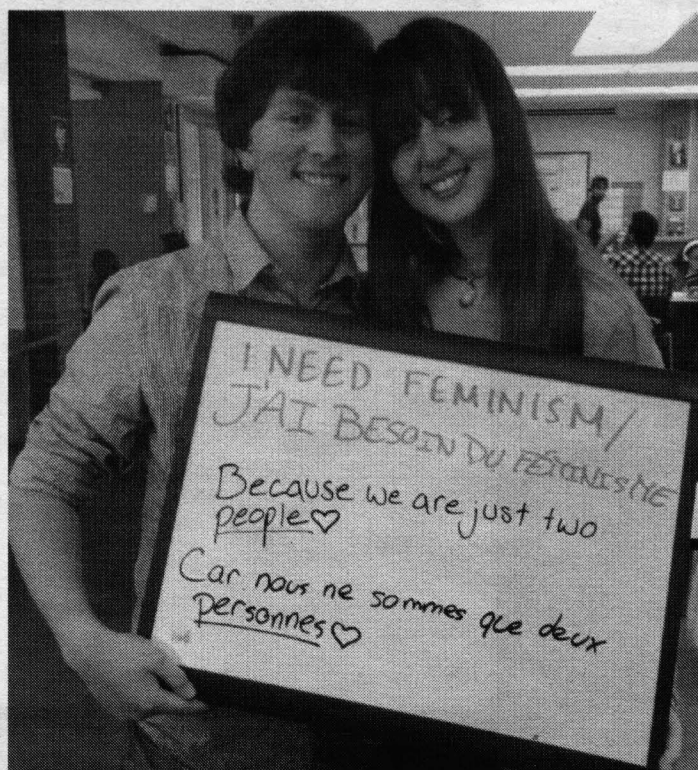 I NEED FEMINISM/
J'AI BESOIN DU FÉMINISME
Because we are just two
people♡
Car nous ne sommes que deux
personnes♡